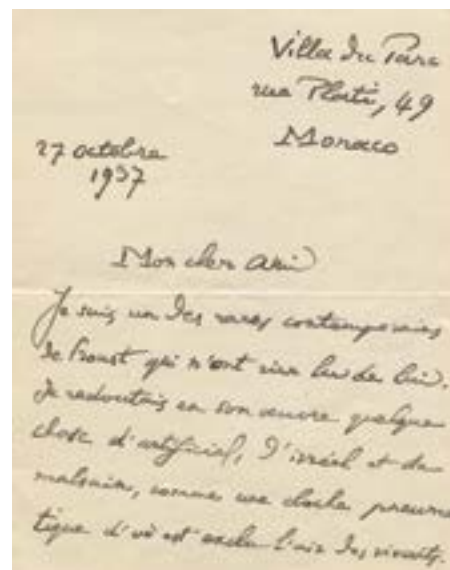 Villa du Parc
rue Plati, 49
Monaco
27 octobre
1937
Mon cher ami
Je suis un des rares contemporains
de Proust qui n'ont rien lu de lui.
Je redoutais en son œuvre quelque
chose d'artificiel, d'irréel et de
malsain, comme une cloche pneuma
tique d'où est exclu l'air des vivants.